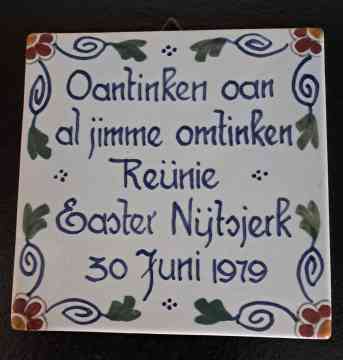 Oantinken oan
al jimme omtinken
Reünie
Easter Nijtsjerk
30 Juni 1979